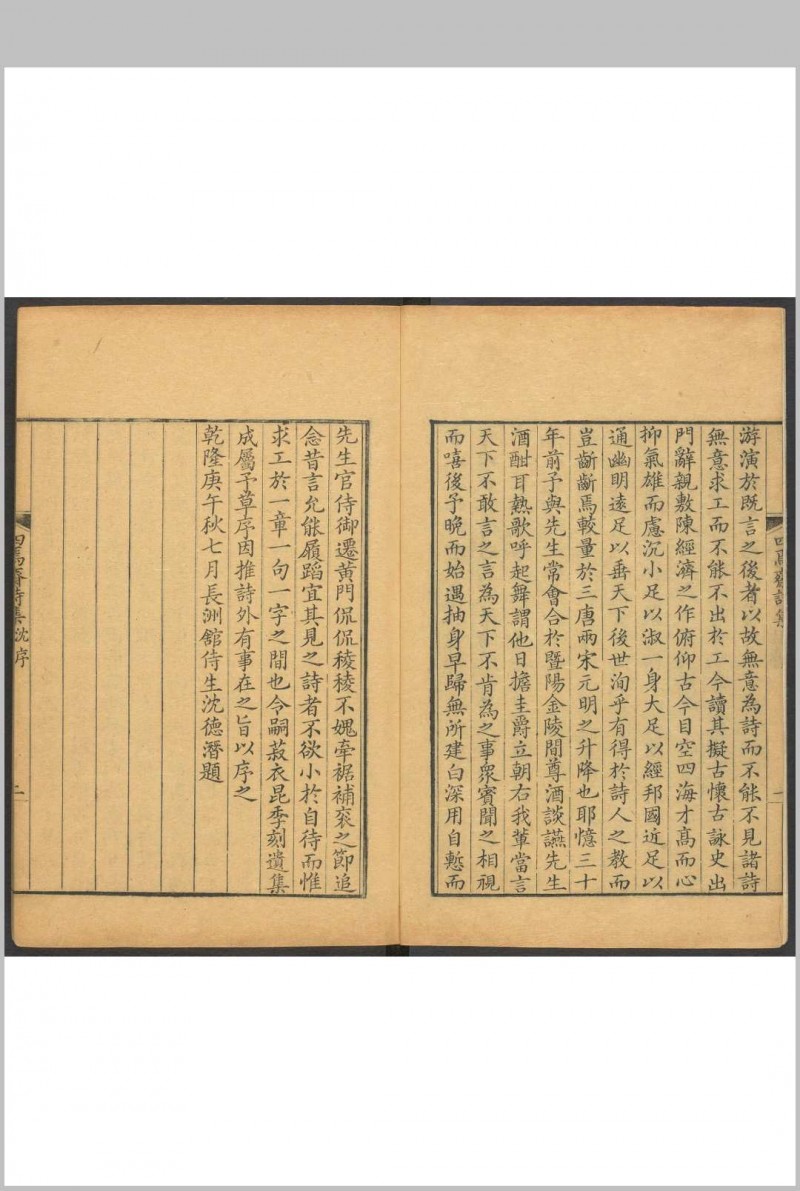 游演於既言之後者以故無意為詩而不能不見諸詩
無意求工而不能不出於工今讀其擬古懷古詠史出
門辭親敷陳經濟之作俯仰古今目空四海才高而心
抑氣雄而慮沉小足以淑一身大足以經邦國近足以
通幽明遠足以垂天下後世洵乎有得於詩人之教而
豈齗齗焉較量於三唐兩宋元明之升降也耶憶三十
年前予與先生常會合於暨陽金陵間尊酒談讌先生
酒酣耳熱歌呼起舞謂他日擔圭爵立朝右我輩當言
天下不敢言之言為天下不肯為之事衆賓聞之相視
而嘻後予晚而始遇抽身早歸無所建白深用自慙而
四焉齋詩集
一
先生官侍御遷黃門侃侃稜稜不媿牽裾補袞之節追
念昔言允能履蹈宜其見之詩者不欲小於自待而惟
求工於一章一句一字之間也令嗣菽衣昆季刻遺集
成屬予草序因推詩外有事在之旨以序之
乾隆庚午秋七月長洲舘侍生沈德潛題
四焉齋詩集 沈序
二